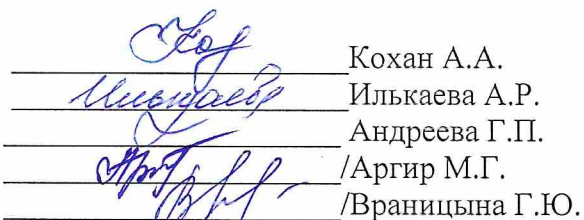 Кохан А.А.
Илькаева Илькаева А.Р.
Андреева Г.П.
/Аргир М.Г.
/Враницына Г.Ю.